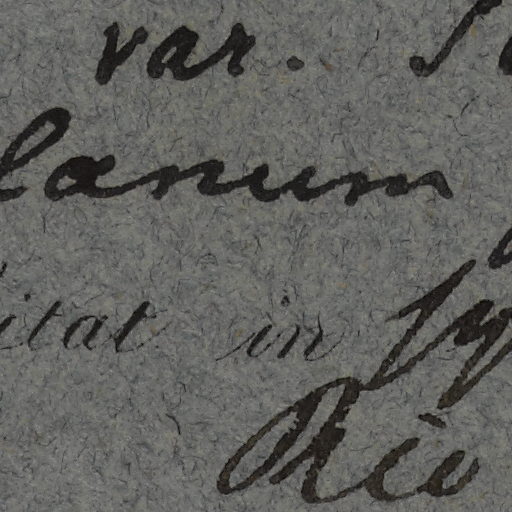 var.
lanum
itat in sy
Rio